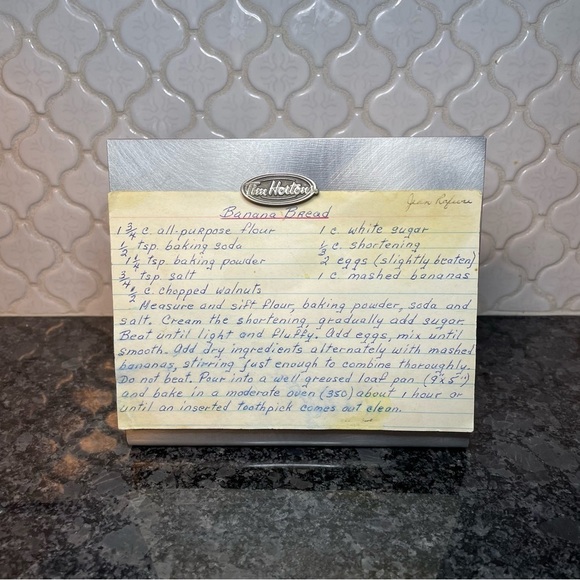 Tim Hortons
Jean
Banana Bread
1 3/4 c. all-purpose flour 1 c. white sugar
1/2 tsp. baking soda 1/3 c. shortening
1 1/4 tsp. baking powder 2 eggs (slightly beaten)
3/4 tsp. salt 1 c. mashed bananas
1/2 c. chopped walnuts
Measure and sift flour, baking powder, soda and
salt. Cream the shortening, gradually add sugar.
Beat until light and fluffy. Add eggs, mix until
smooth. Add dry ingredients alternately with mashed
bananas, stirring just enough to combine thoroughly.
Do not beat. Pour into a well greased loaf pan (9"x5")
and bake in a moderate oven (350) about 1 hour or
until an inserted toothpick comes out clean.